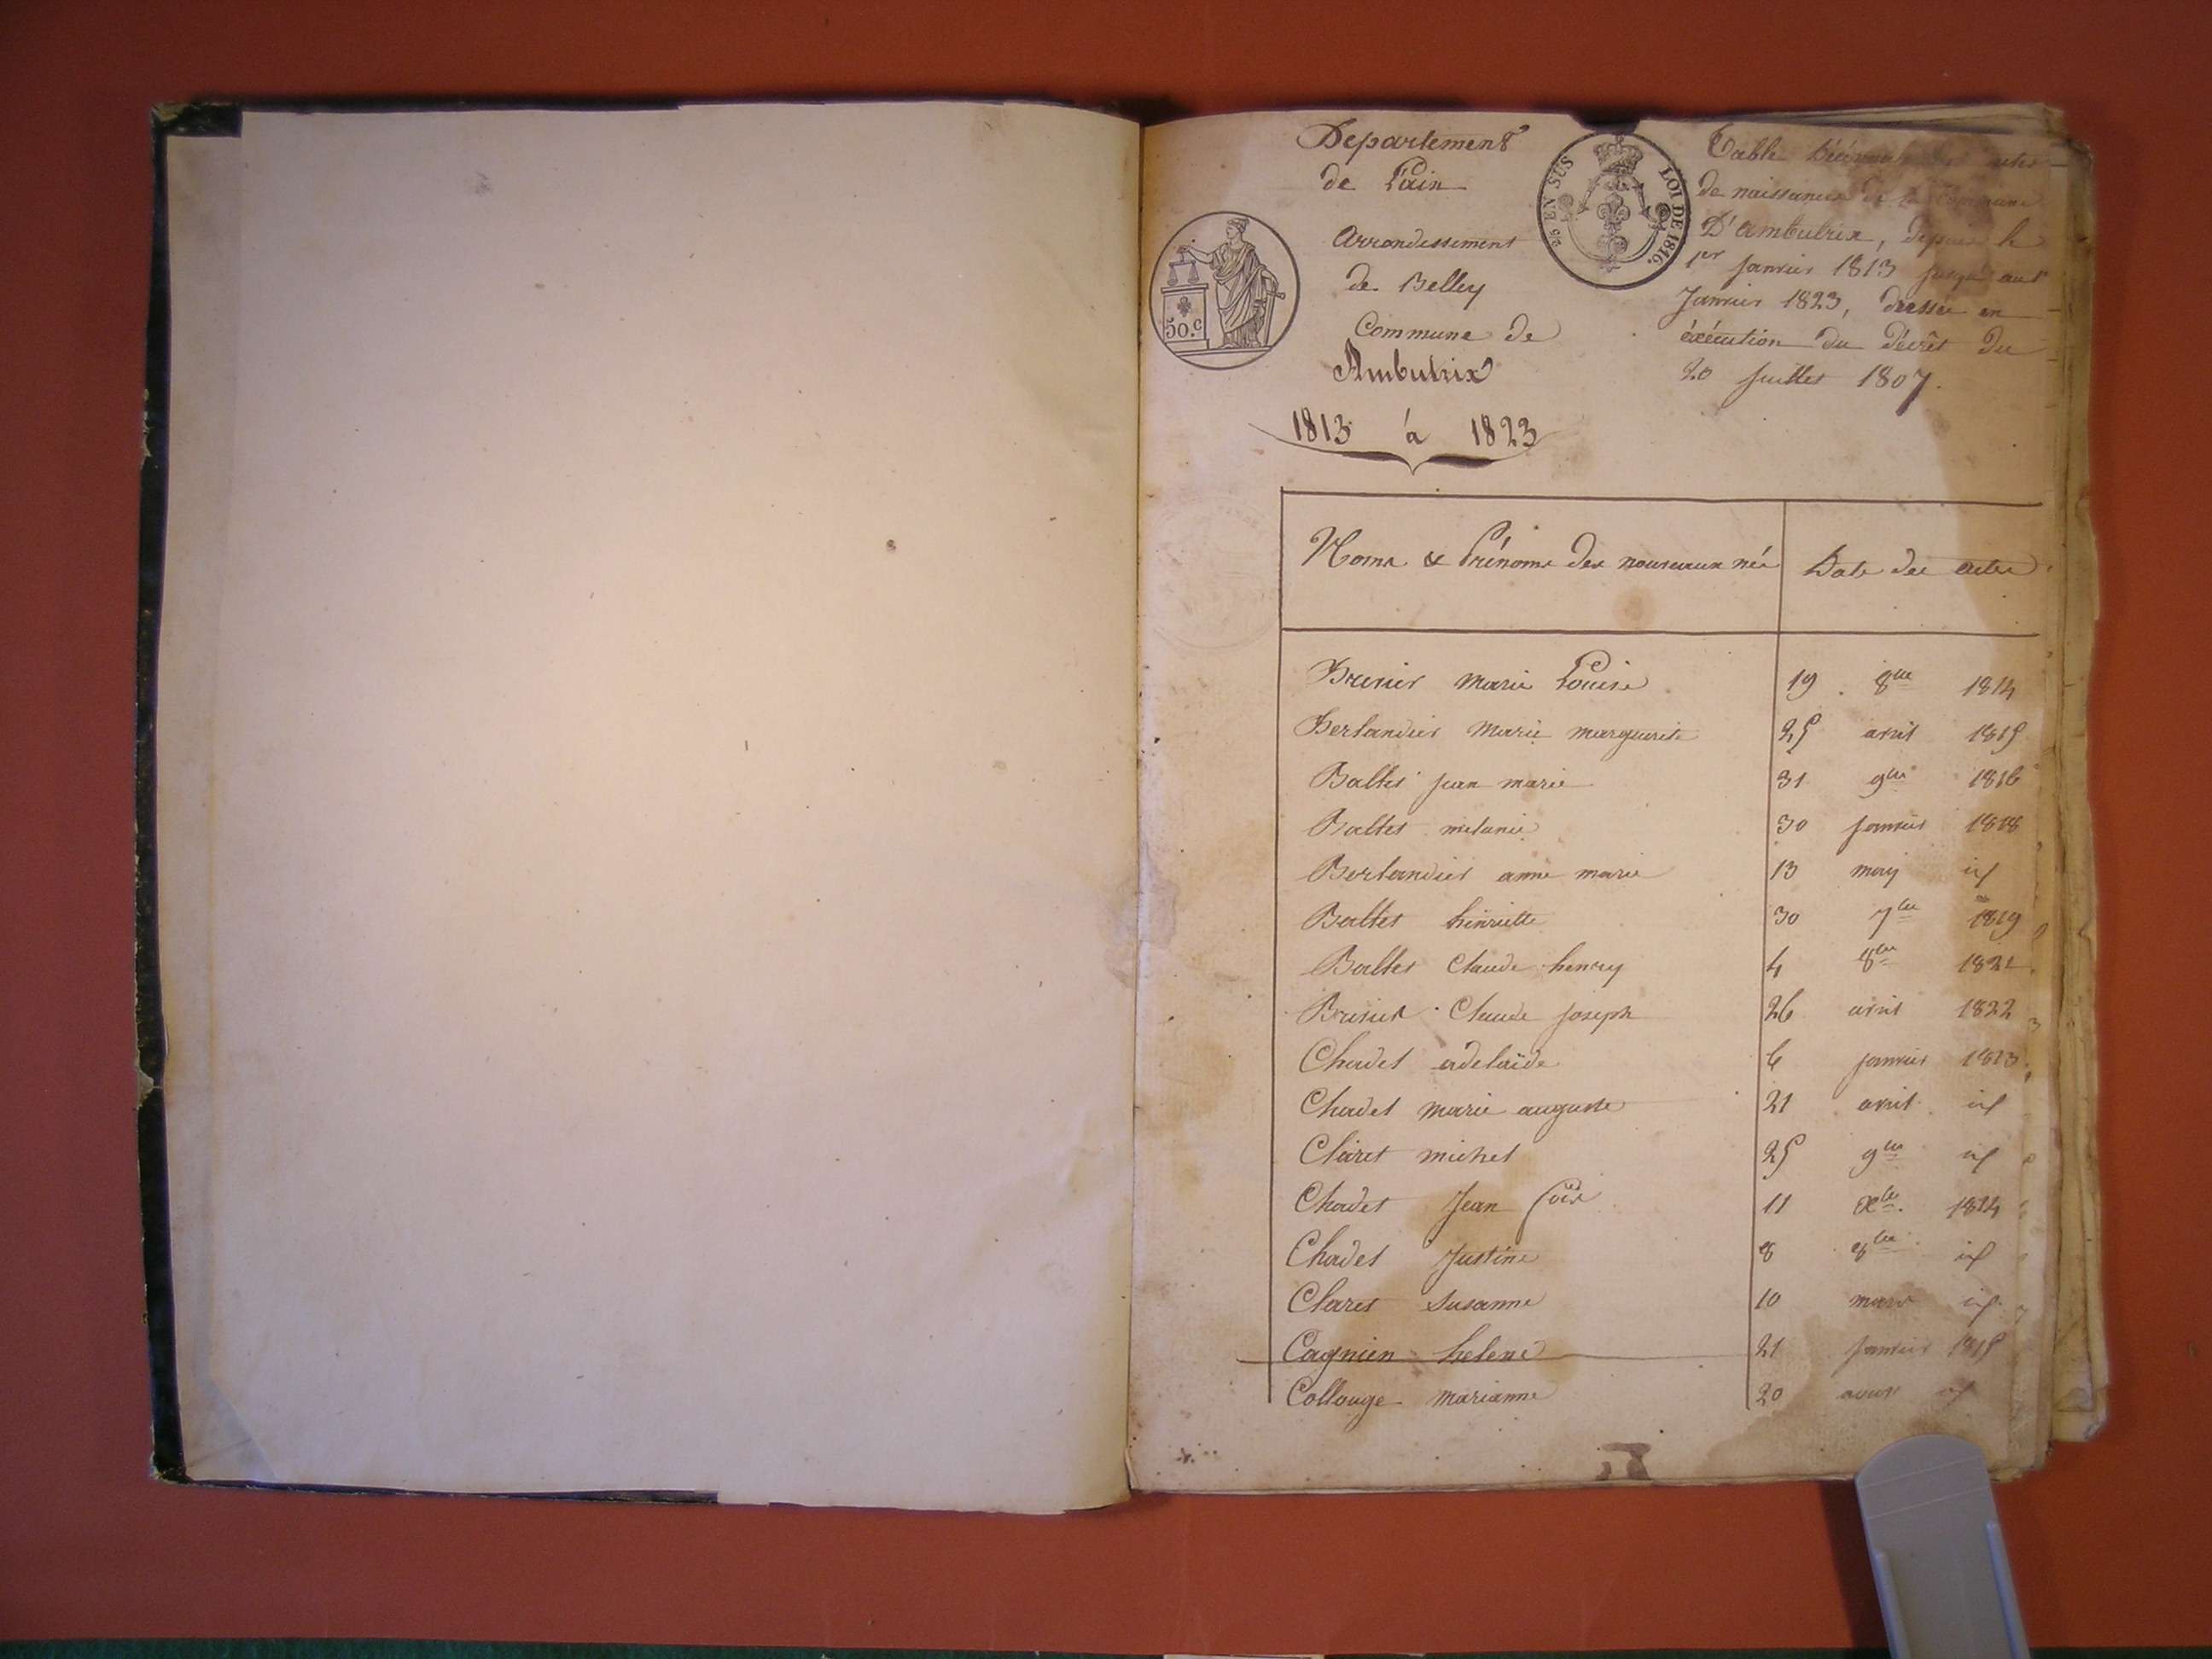 Departement
de L'ain
Arrondissement
de Belley
Commune de
Ambutrix
1813 à 1823
50.c
2/5 EN SUS
LOI DE 1816.
Table Décennale des actes
de naissances de la Commune
D'Ambutrix, depuis le
1er janvier 1813 jusqu'au 1r
Janvier 1823, dressée en
éxécution du Décrêt Du
20 juillet 1807.
Noms & Prénoms des nouveaux nés Date des actes
Brunier Marie Louise 19 8bre 1814
Berlandier Marie marguerite 25 avril 1815
Baltés jean marie 31 9bre 1816
Baltes melanie 30 janvier 1818
Berlandier anne marie 13 may id
Baltes henriette 30 7bre 1819
Baltes Claude henry 4 8bre 1821
Brunier Claude joseph 26 avril 1822
Chadet adelaïde 6 janvier 1813
Chadet marie auguste 21 avril id
Claret michel 25 9bre id
Chadet Jean 11 Xbre 1814
Chadet Justine 8 8bre id
Claret Susanne 10 mars id
Cagnien helene 21 janvier 1815
Collouge marianne 20 aout id